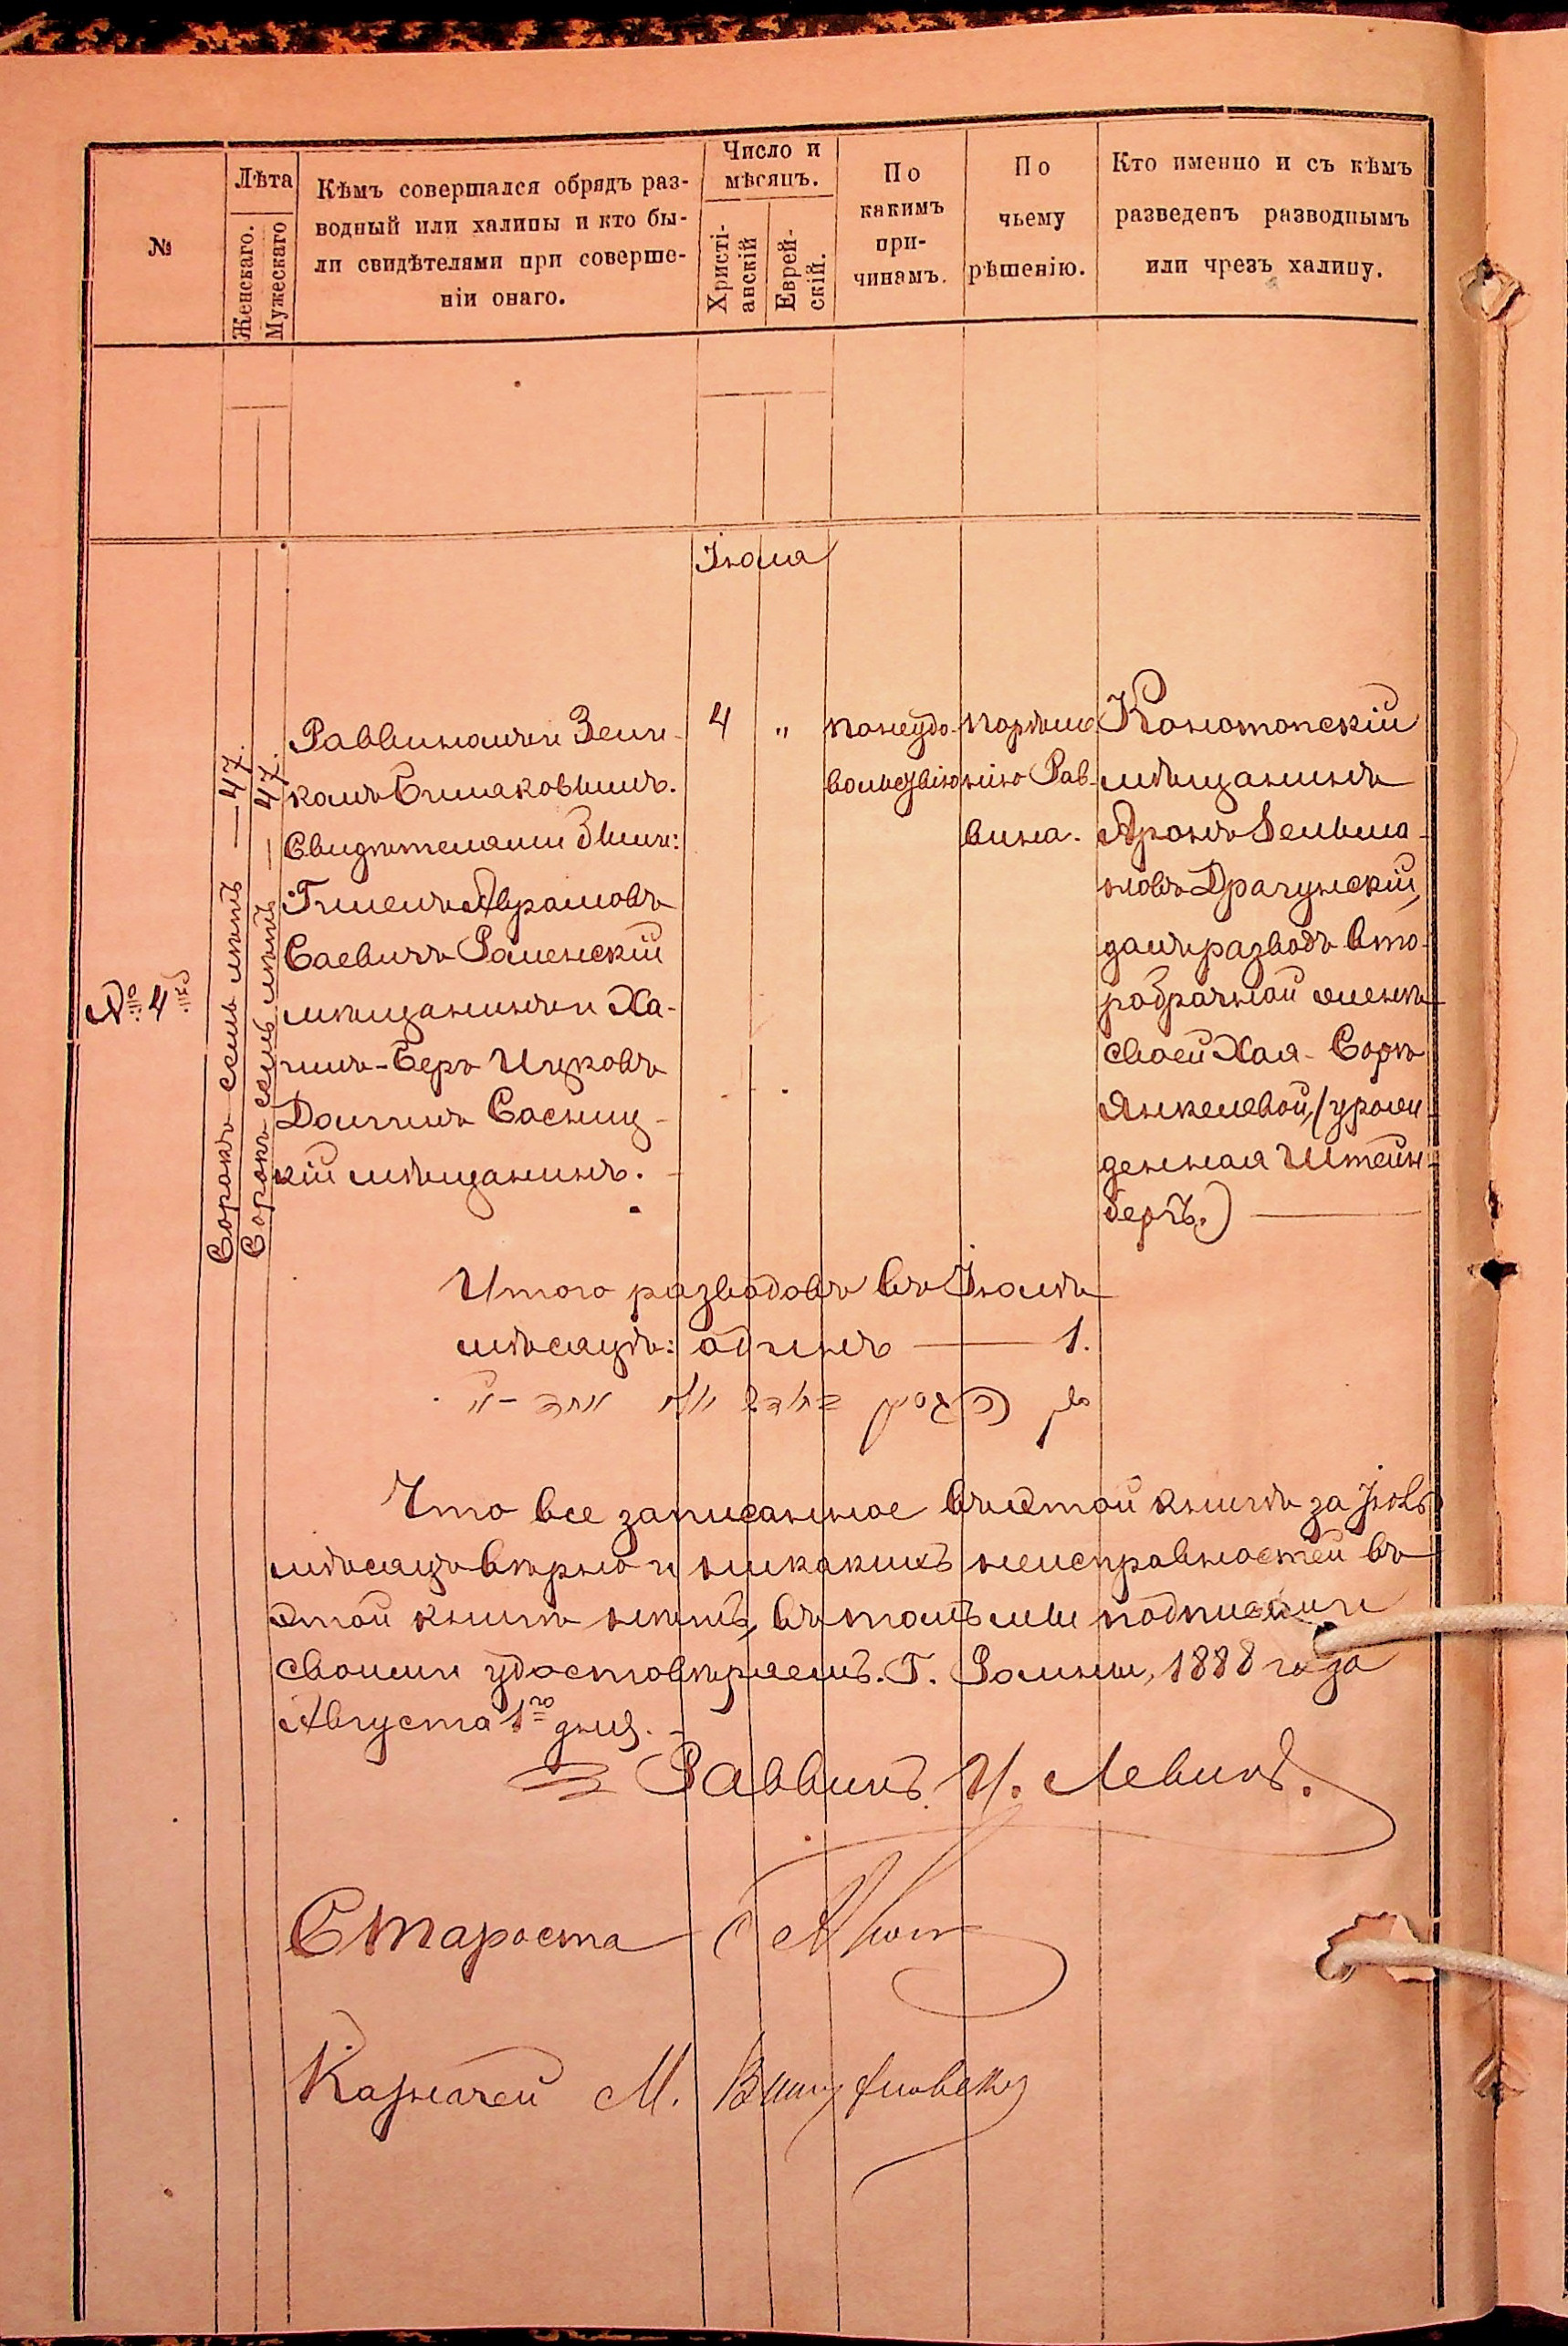 №
Лѣта
Женскаго.
Мужескаго
Кѣмъ совершался обрядъ раз-
водный или халицы и кто бы-
ли свидѣтелями при соверше-
ніи онаго.
Число и
мѣсяцъ.
Христі-
анскій
Еврей-
скій.
По
какимъ
при-
чинамъ.
По
чьему
рѣшенію.
Кто именно и съ кѣмъ
разведенъ разводнымъ
или чрезъ халицу.
Іюля
№ 4й
Сорокъ семь лѣтъ — 47.
Сорокъ семь лѣтъ — 47.
Раввиномъ
Свидѣтелями были:
Аврамовъ
Саевичъ Роменскій
мѣщанинъ и Ха-
имъ-Беръ Ицковъ
Сосниц-
кій мѣщанинъ.
4 "
по неудо-
вольствію
по рѣше-
нію Рав-
вина.
Конотопскій
мѣщанинъ
Аронъ Зельма-
новъ Драгунскій,
далъ разводъ вто-
робрачной женѣ
своей Хая-Сорѣ
Янкелевой, (урож-
денная Штейн-
бергъ.)
Итого разводовъ въ Іюлѣ
мѣсяцѣ: одинъ — 1.
Что все записанное въ этой книгѣ за Іюль
мѣсяцъ вѣрно и никакихъ неисправностей въ
этой книгѣ нѣтъ, въ томъ мы подписями
своими удостовѣряемъ. Г. Ромны, 1888 года
Августа 1го дня.
Раввинъ И. Левинъ.
Староста
Казначей М.